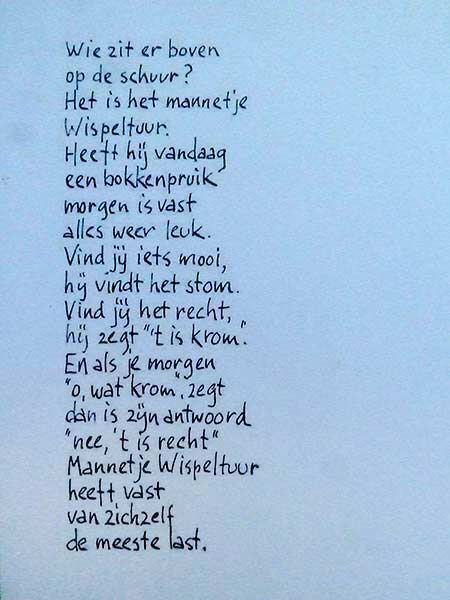 Wie zit er boven
op de schuur?
Het is het mannetje
Wispeltuur.
Heeft hij vandaag
een bokkenpruik
morgen is vast
alles weer leuk.
Vind jij iets mooi,
hij vindt het stom.
Vind jij het recht,
hij zegt "'t is krom".
En als je morgen
"o, wat krom", zegt
dan is zijn antwoord
"nee, 't is recht"
Mannetje Wispeltuur
heeft vast
van zichzelf
de meeste last.